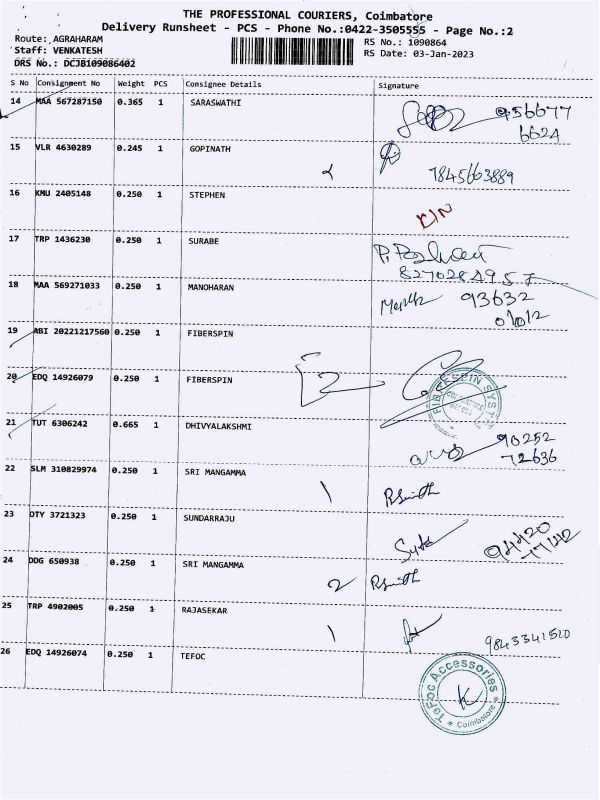 THE PROFESSIONAL COURIERS, Coimbatore
Delivery Runsheet - PCS - Phone No.:0422-3505555 - Page No.:2
Route: AGRAHARAM
Staff: VENKATESH
DRS No.: DCJB109086402
RS No.: 1090864
RS Date: 03-Jan-2023
S No Consignment No Weight PCS Consignee Details Signature
14 MAA 567287150 0.365 1 SARASWATHI 956677
6624
15 VLR 4630289 0.245 1 GOPINATH
7845663889
16 KMU 2405148 0.250 1 STEPHEN
17 TRP 1436230 0.250 1 SURABE
8270284957
18 MAA 569271033 0.250 1 MANOHARAN 93632
19 ABI 20221217560 0.250 1 FIBERSPIN
20 EDQ 14926079 0.250 1 FIBERSPIN
FIBERSPIN SYSTEM
21 TUT 6306242 0.665 1 DHIVYALAKSHMI 90252
72636
22 SLM 310829974 0.250 1 SRI MANGAMMA 1
23 OTY 3721323 0.250 1 SUNDARRAJU 94420
77142
24 DDG 650938 0.250 1 SRI MANGAMMA 2
25 TRP 4902005 0.250 1 RAJASEKAR 1 9843341520
26 EDQ 14926074 0.250 1 TEFOC
TeFoc Accessories
Coimbatore
K